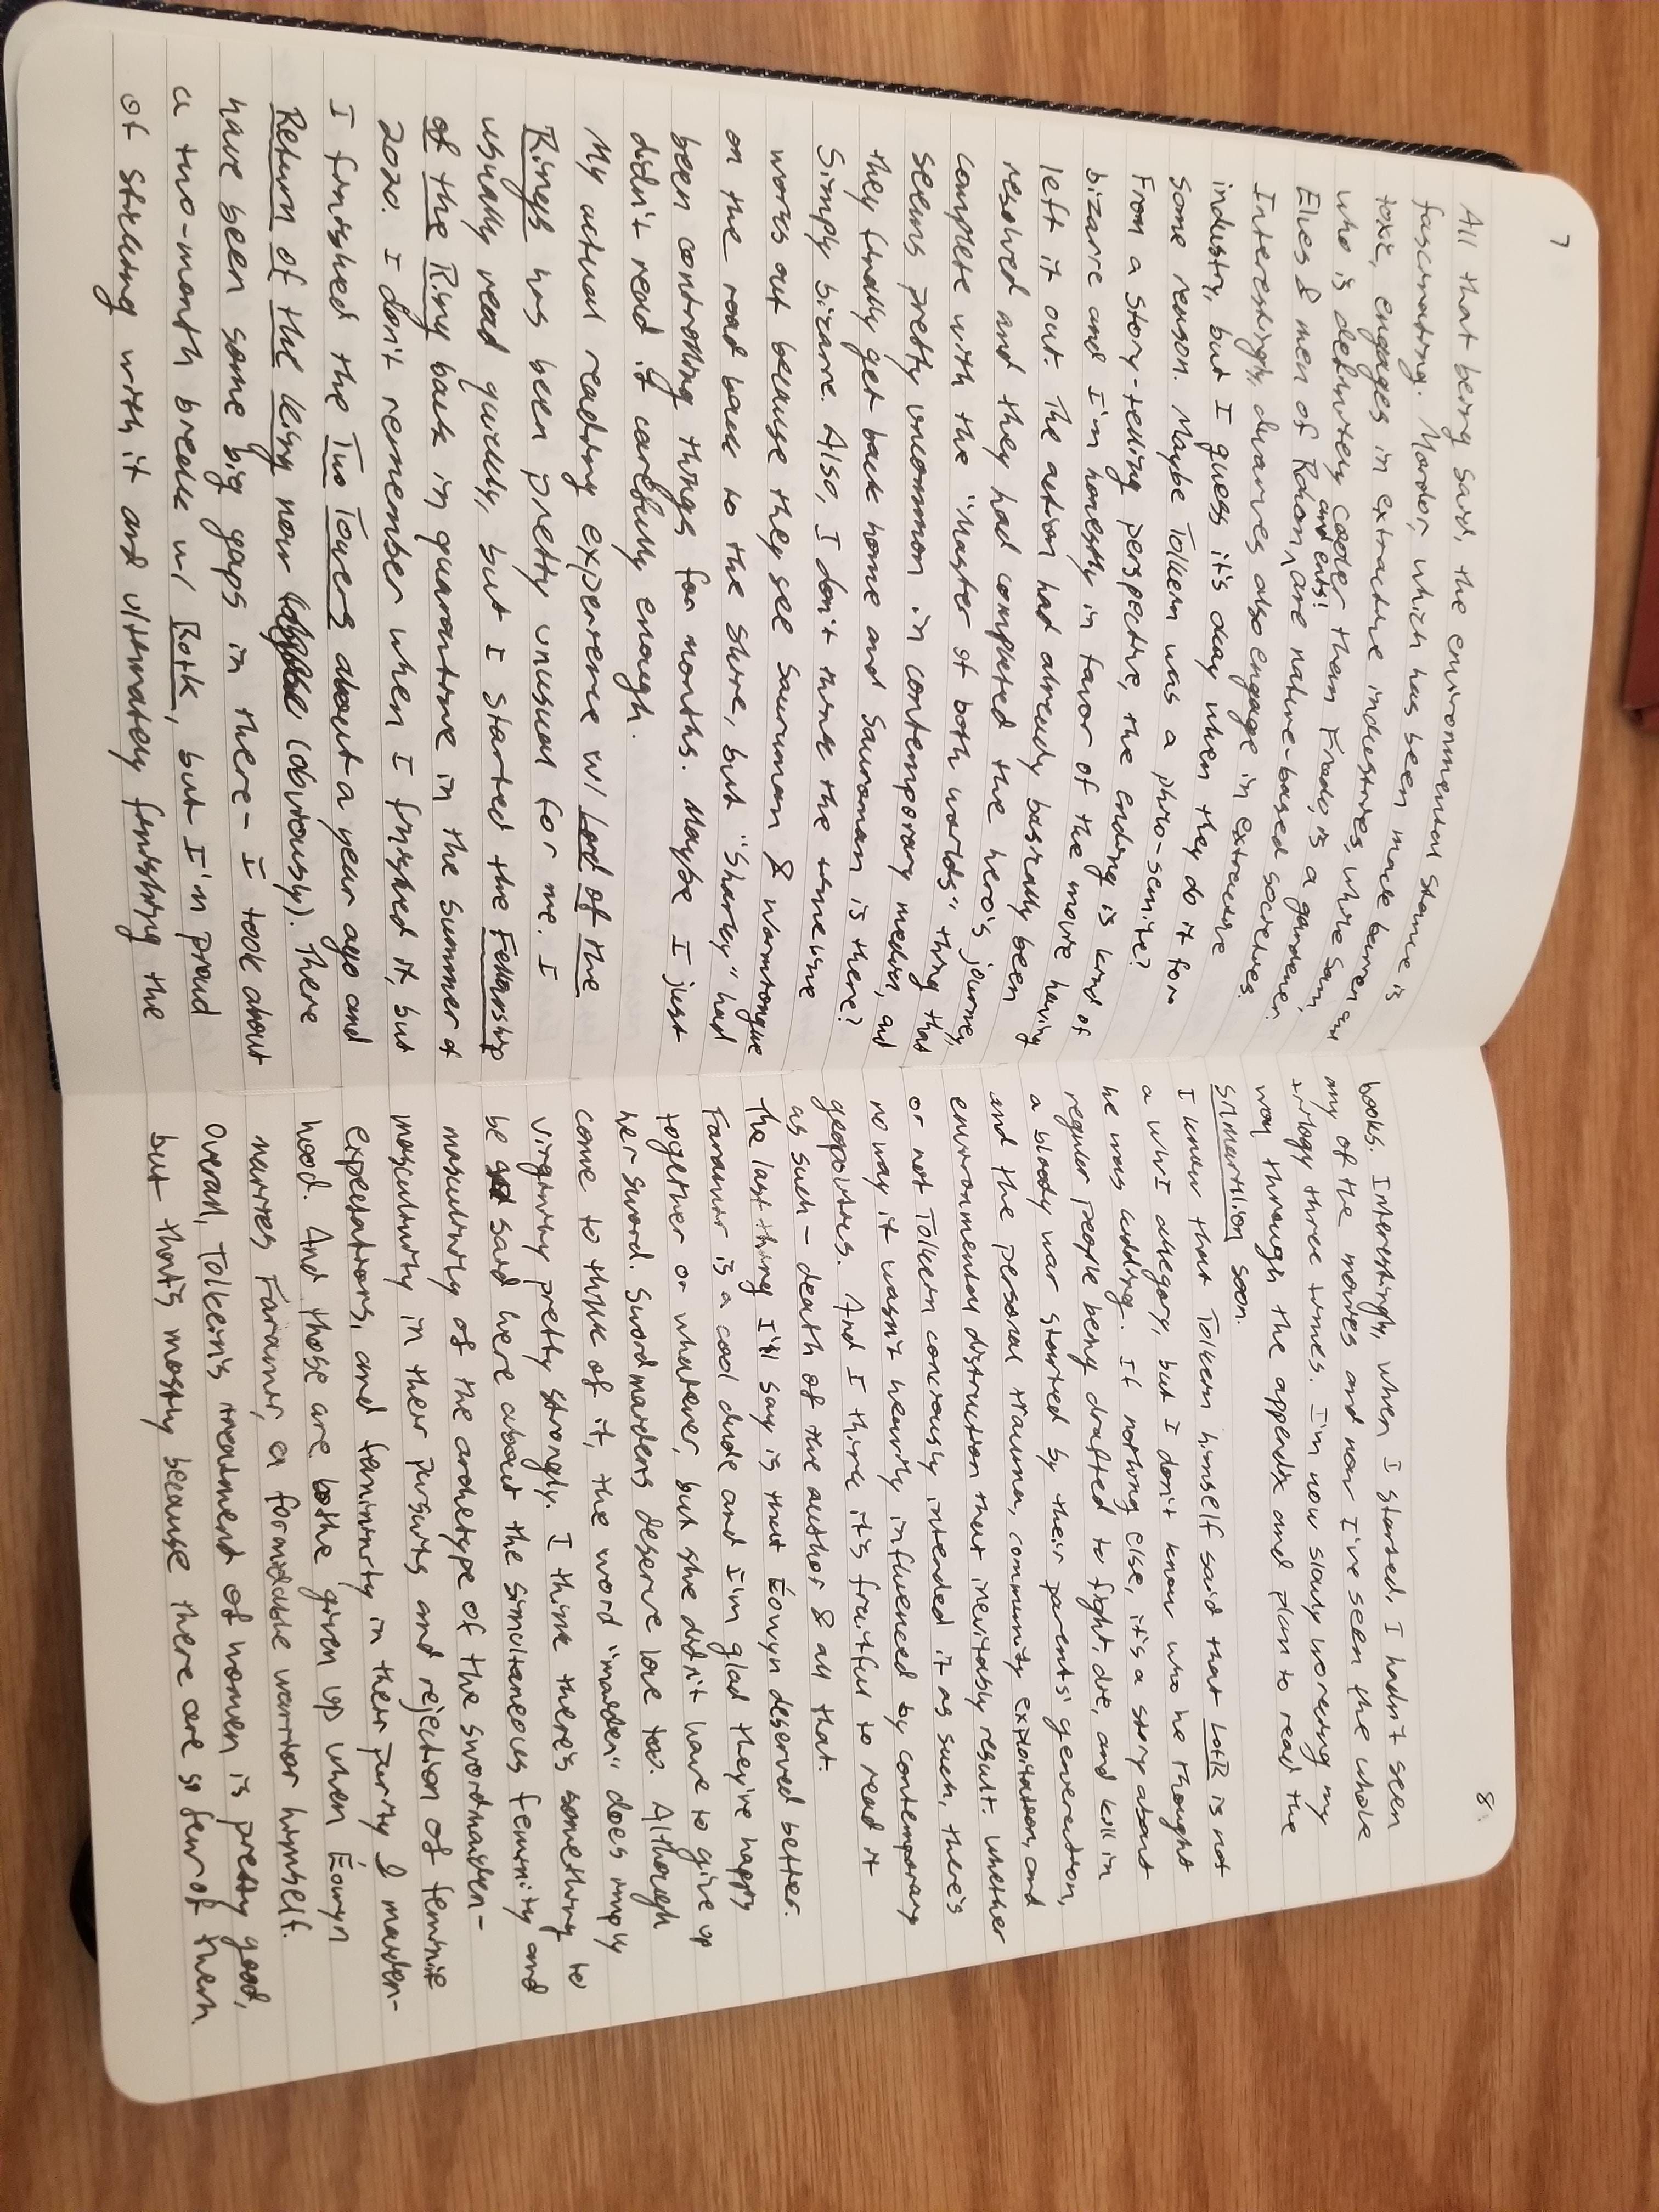 7
All that being said, the environmental stance is
fascinating. Mordor, which has been made barren and
toxic, engages in extractive industries, while Sam,
who is definitely cooler than Frodo, is a gardener.
Elves & men of Rohan, and ents! are nature-based societies.
Interestingly, dwarves also engage in extractive
industry, but I guess it's okay when they do it for
some reason. Maybe Tolkein was a philo-semite?
From a story-telling perspective, the ending is kind of
bizarre and I'm honestly in favor of the movie having
left it out. The action had already basically been
resolved and they had completed the hero's journey,
complete with the "Master of both worlds" thing that
seems pretty uncommon in contemporary media, and
they finally get back home and Sauroman is there?
Simply bizarre. Also, I don't think the timeline
works out because they see Sauruman & Wormtongue
on the road back to the shire, but "Sharky" had
been controlling things for months. Maybe I just
didn't read it carefully enough.
My actual reading experience w/ Lord of the
Rings has been pretty unusual for me. I
usually read quickly, but I started the Fellowship
of the Ring back in quarantine in the summer of
2020. I don't remember when I finished it, but
I finished the Two Towers about a year ago and
Return of the King now (obviously). There
have been some big gaps in there - I took about
a two-month break w/ RotK, but I'm proud
of sticking with it and ultimately finishing the
8
books. Interestingly, when I started, I hadn't seen
any of the movies and now I've seen the whole
trilogy three times. I'm now slowly working my
way through the appendix and plan to read the
Silmarillion soon.
I know that Tolkein himself said that LotR is not
a WWI allegory, but I don't know who he thought
he was kidding. If nothing else, it's a story about
regular people being drafted to fight, die, and kill in
a bloody war started by their parents' generation,
and the personal trauma, community exploitation, and
environmental distruction that inevitably result. Whether
or not Tolkein conciously intended it as such, there's
no way it wasn't heavily influenced by contemporary
geopolitics. And I think it's fruitful to read it
as such - death of the author & all that.
The last thing I'll say is that Éowyn deserved better.
Faramir is a cool dude and I'm glad they're happy
together or whatever, but she didn't have to give up
her sword. Swordmaidens deserve love too. Although
come to think of it, the word "maiden" does imply
virginity pretty strongly. I think there's something to
be said here about the simultaneous feminity and
masculinity of the archetype of the swordmaiden -
masculinity in their pursuits and rejection of feminine
expectations, and femininity in their purity & maiden-
hood. And those are bothe given up when Éowyn
marries Faramir, a formidable warrior himself.
Overall, Tolkein's treatment of women is pretty good,
but that's mostly because there are so few of them